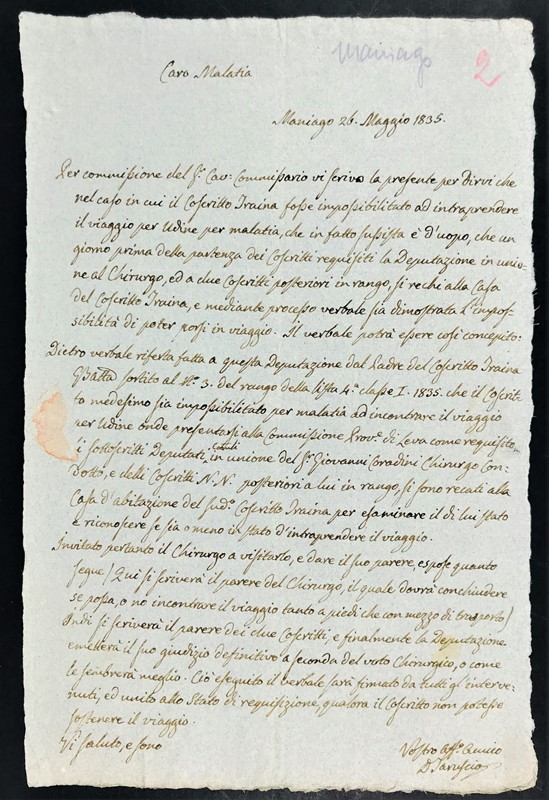 Maniago
2
Caro Malatia
Maniago 26. Maggio 1835.
Per commissione del Sr. Cav: Commissario vi scrivo la presente per dirvi che
nel caso in cui il Coscritto Traina fosse impossibilitato ad intraprendere
il viaggio per Udine per malatia, che in fatto sussista è d'uopo, che un
giorno prima della partenza dei Coscritti requisiti la Deputazione in unio-
ne al Chirurgo, ed a due Coscritti posteriori in rango, si rechi alla Casa
del Coscritto Traina, e mediante processo verbale sia dimostrata l'impos-
sibilità di poter porsi in viaggio. Il verbale potrà essere così concepito:
Dietro verbale riferta fatta a questa Deputazione dal Padre del Coscritto Traina
GBatta sortito al No. 3. del rango della lista 4.a classe I. 1835. che il Coscrit-
to medesimo sia impossibilitato per malatia ad incontrare il viaggio
per Udine onde presentarsi alla Commissione Prov.e di Leva come requisito,
i sottoscritti Deputati, in unione del Sr. Giovanni Coradini Chirurgo Con-
dotto, e delli Coscritti N.N. posteriori a lui in rango, si sono recati alla
Casa d'abitazione del sud.o Coscritto Traina per esaminare il di lui stato
e riconoscere se sia o meno in stato d'intraprendere il viaggio.
Invitato pertanto il Chirurgo a visitarlo, e dare il suo parere, espose quanto
segue / Qui si scriverà il parere del Chirurgo, il quale dovrà conchiudere
se possa, o no incontrare il viaggio tanto a piedi che con mezzo di trasporto /
Indi si scriverà il parere dei due Coscritti, e finalmente la Deputazione
emetterà il suo giudizio definitivo a seconda del voto Chirurgico, o come
le sembrerà meglio. Ciò eseguito il verbale sarà firmato da tutti gl'interve-
nuti, ed unito allo Stato di requisizione, qualora il Coscritto non potesse
sostenere il viaggio.
Vi saluto, e sono
Vostro aff.o Amico